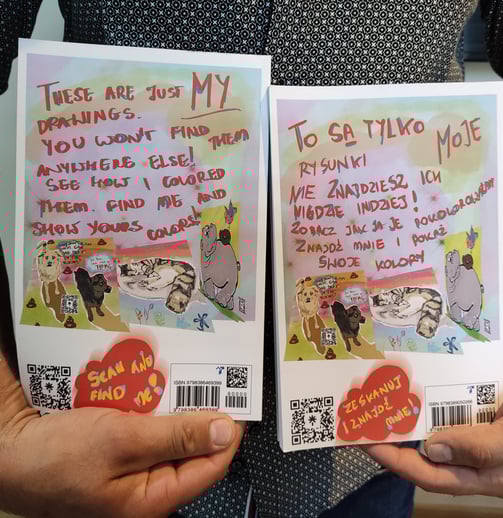 THESE ARE JUST MY
DRAWINGS.
YOU WON'T FIND THEM
ANYWHERE ELSE!
SEE HOW I COLORED
THEM. FIND ME AND
SHOW YOURS COLORS!
SCAN AND
FIND ME!
ISBN 9798386469399
90000
TO SĄ TYLKO MOJE
RYSUNKI
NIE ZNAJDZIESZ ICH
NIGDZIE INDZIEJ!
ZOBACZ JAK JA JE POKOLOROWAŁEM
ZNAJDŹ MNIE I POKAŻ
SWOJE KOLORY
ZESKANUJ
I ZNAJDŹ
MNIE!
90000